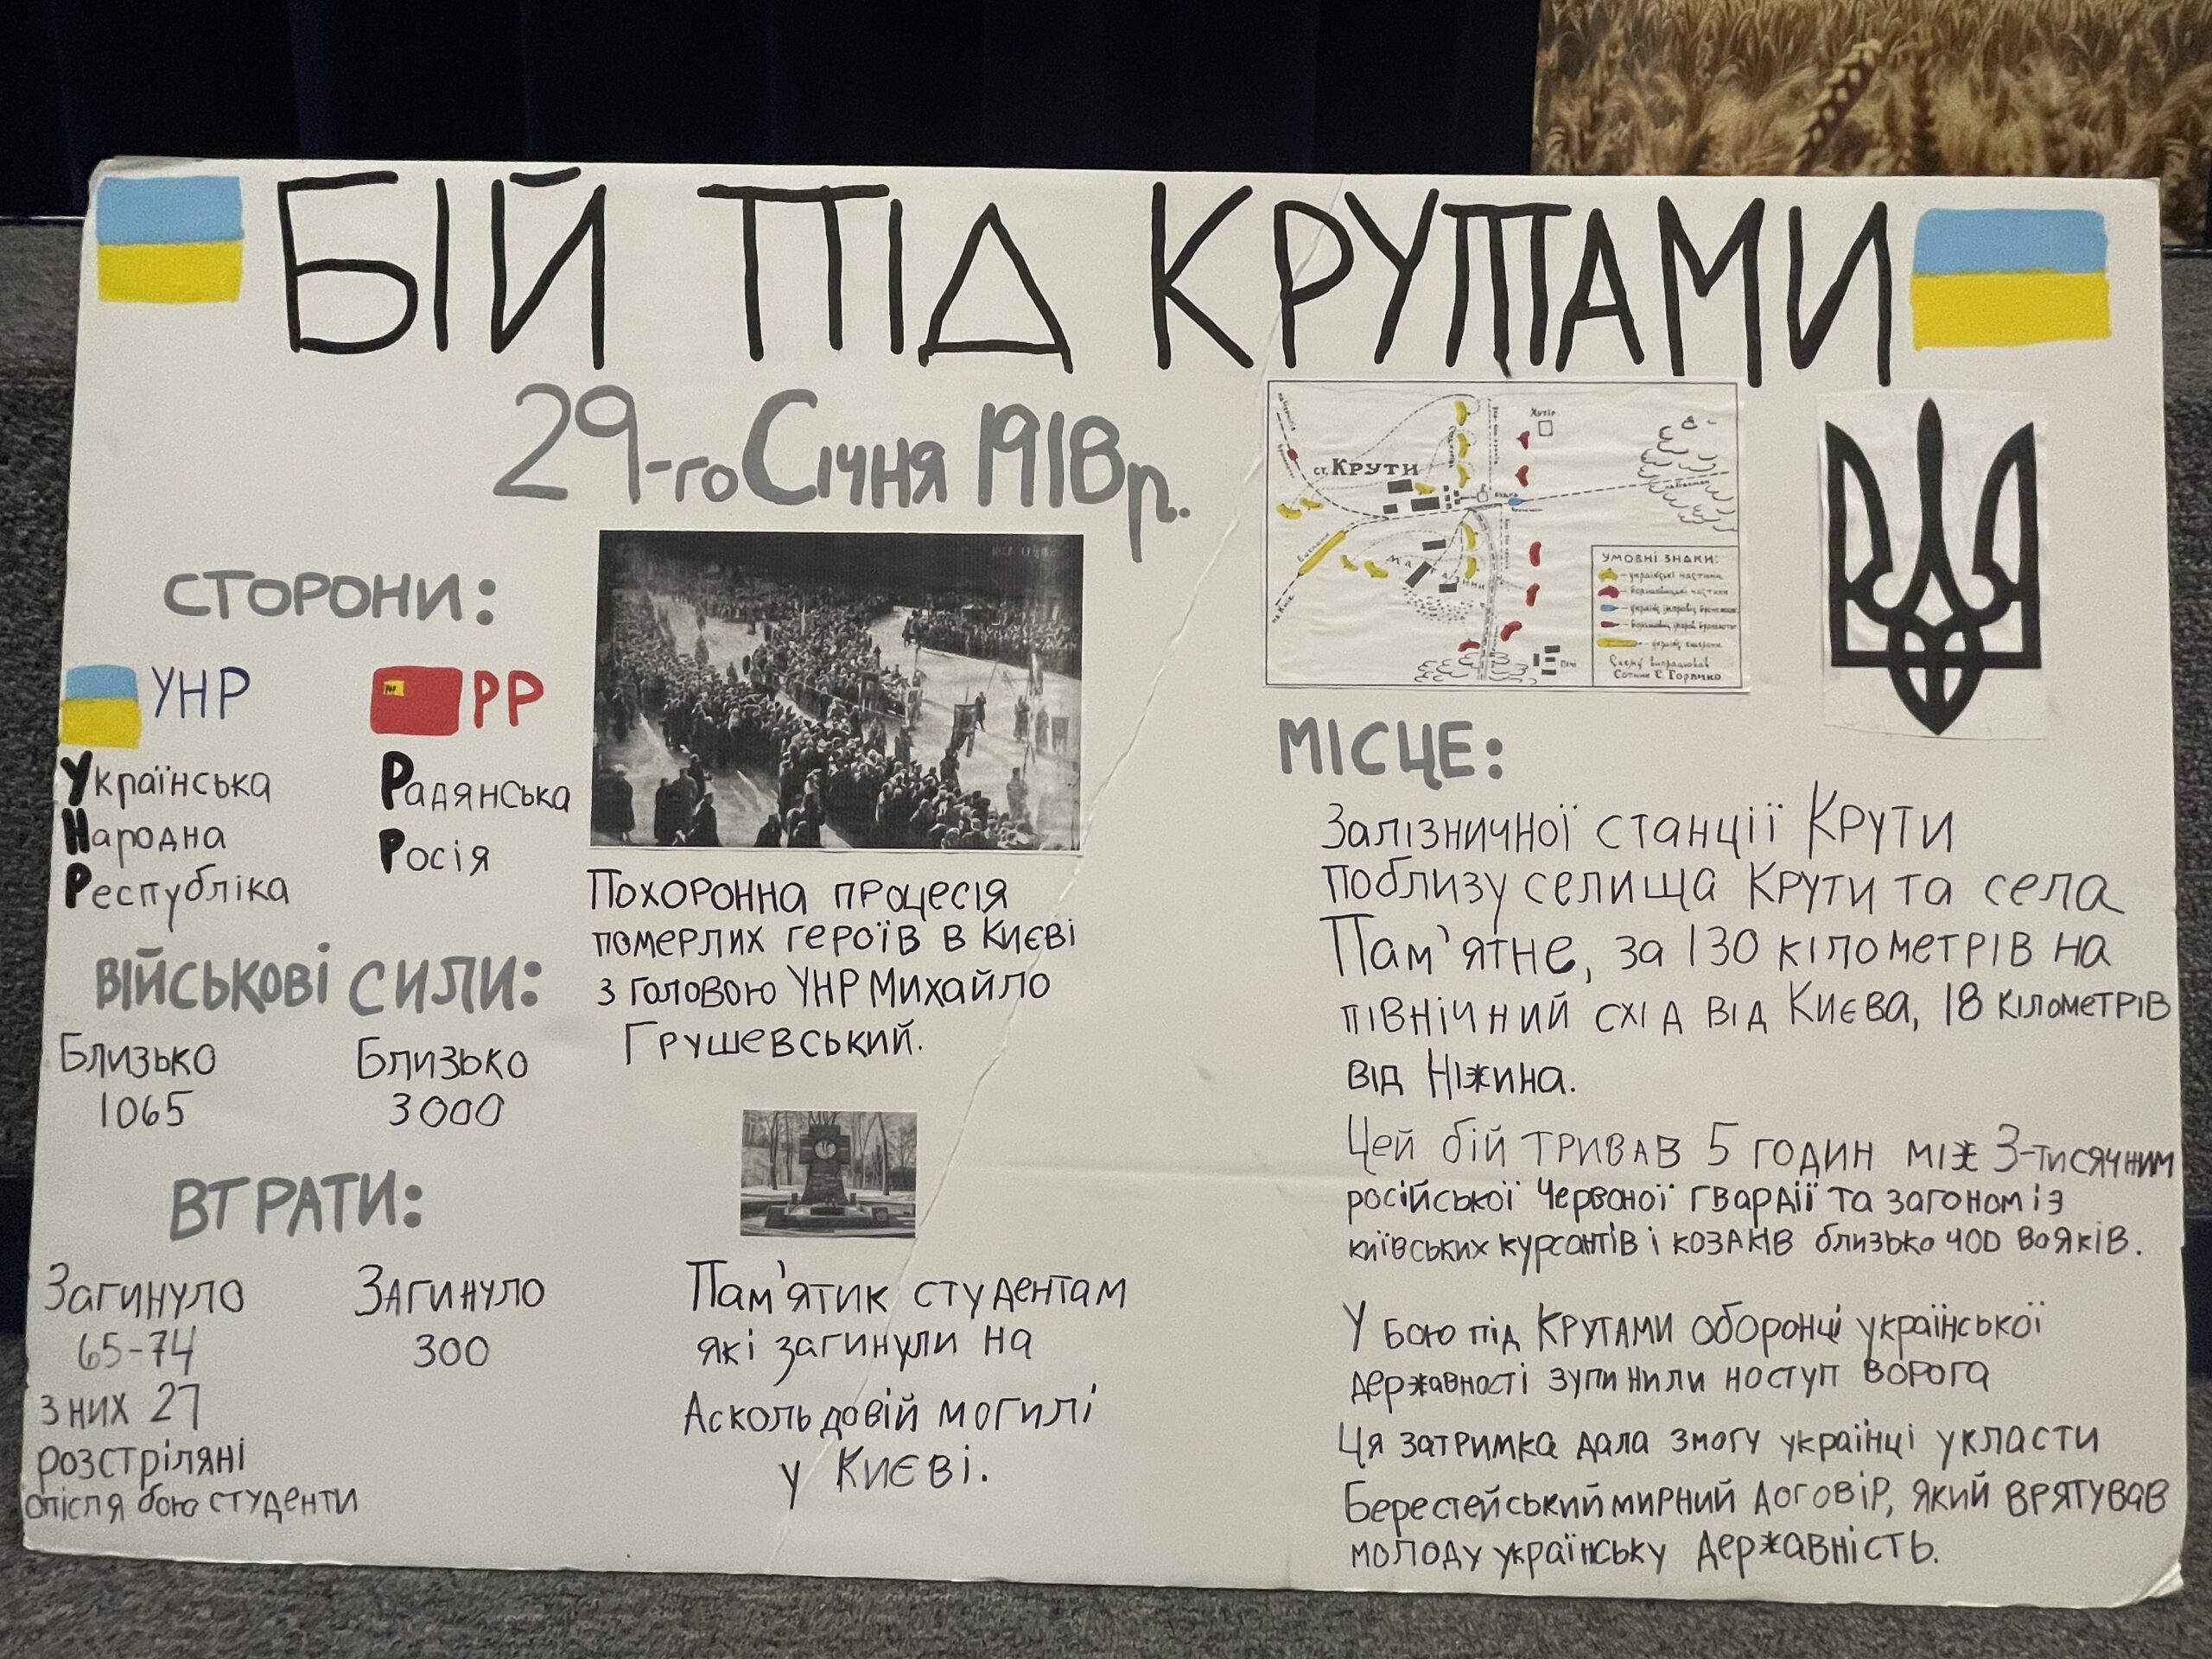 БІЙ ПІД КРУТАМИ
29-го Січня 1918р.
СТОРОНИ:
УНР
РР
Українська
Народна
Республіка
Радянська
Росія
ВІЙСЬКОВІ СИЛИ:
Близько
1065
Близько
3000
ВТРАТИ:
Загинуло
65-74
з них 27
розстріляні
опісля бою студенти
Загинуло
300
Похоронна процесія
померлих героїв в Києві
з головою УНР Михайло
Грушевський.
Пам'ятик студентам
які загинули на
Аскольдовій могилі
у Києві.
Хутір
ст. КРУТИ
на Київ
УМОВНІ ЗНАКИ:
українські частини
большевицькі частини
Схему випрацював
Сотник С. Горячко
МІСЦЕ:
Залізничної станції Крути
поблизу селища Крути та села
Пам'ятне, за 130 кілометрів на
північний схід від Києва, 18 кілометрів
від Ніжина.
Цей бій тривав 5 годин між 3-тисячним
російської Червоної гвардії та загоном із
київських курсантів і козаків близько 400 вояків.
У бою під Крутами оборонці української
державності зупинили ноступ ворога
Ця затримка дала змогу українці укласти
Берестейський мирний договір, який врятував
молоду українську державність.